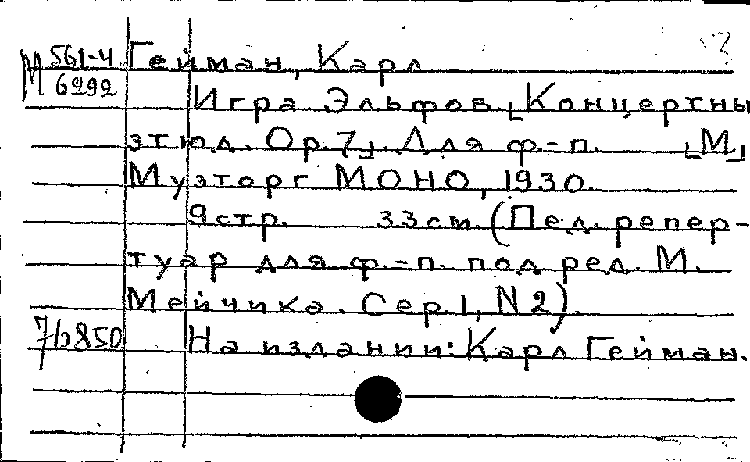 М 561-4 Гейман, Карл
6292 Игра Эльфов [Концертны
этюд. Op. 7]. Для ф.-п. [М]
Музторг МОНО, 1930.
9 стр. 33 см. (Пед. репер-
туар для ф.-п. под ред. М.
Мейчика. Сер. 1, N 2).
76850 На издании: Карл Гейман.